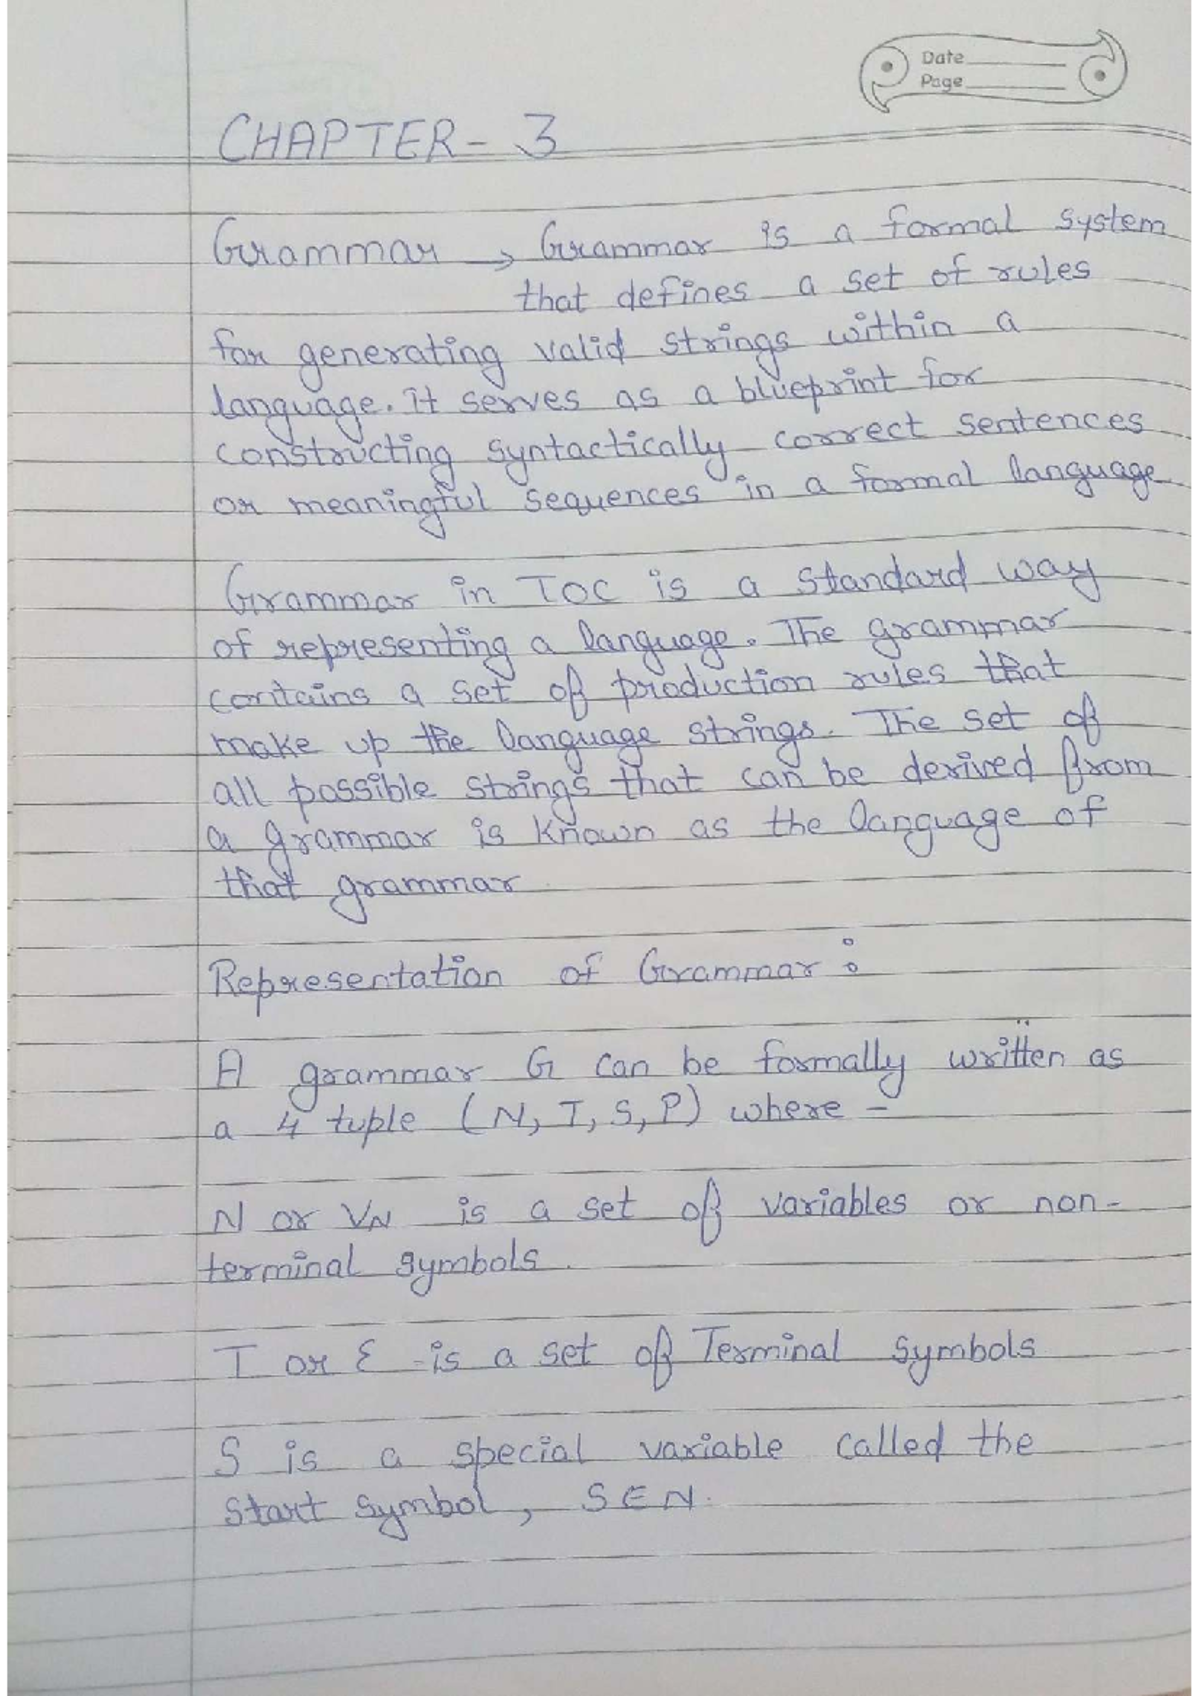 Date
Page
CHAPTER- 3
Grammar → Grammar is a formal system
that defines a set of rules
for generating valid strings within a
language. it serves as a blueprint for
constructing syntactically correct sentences
or meaningful sequences in a formal language
Grammar in TOC is a standard way
of representing a language. The grammar
contains a set of production rules that
make up the language strings. The set of
all possible strings that can be derived from
a grammar is known as the language of
that grammar
Representation of Grammar :
A grammar G can be formally written as
a 4 tuple (N, T, S, P) where -
N or VN is a set of variables or non-
terminal symbols.
T or Σ is a set of Terminal symbols
S is a special variable called the
Start symbol, S∈N.